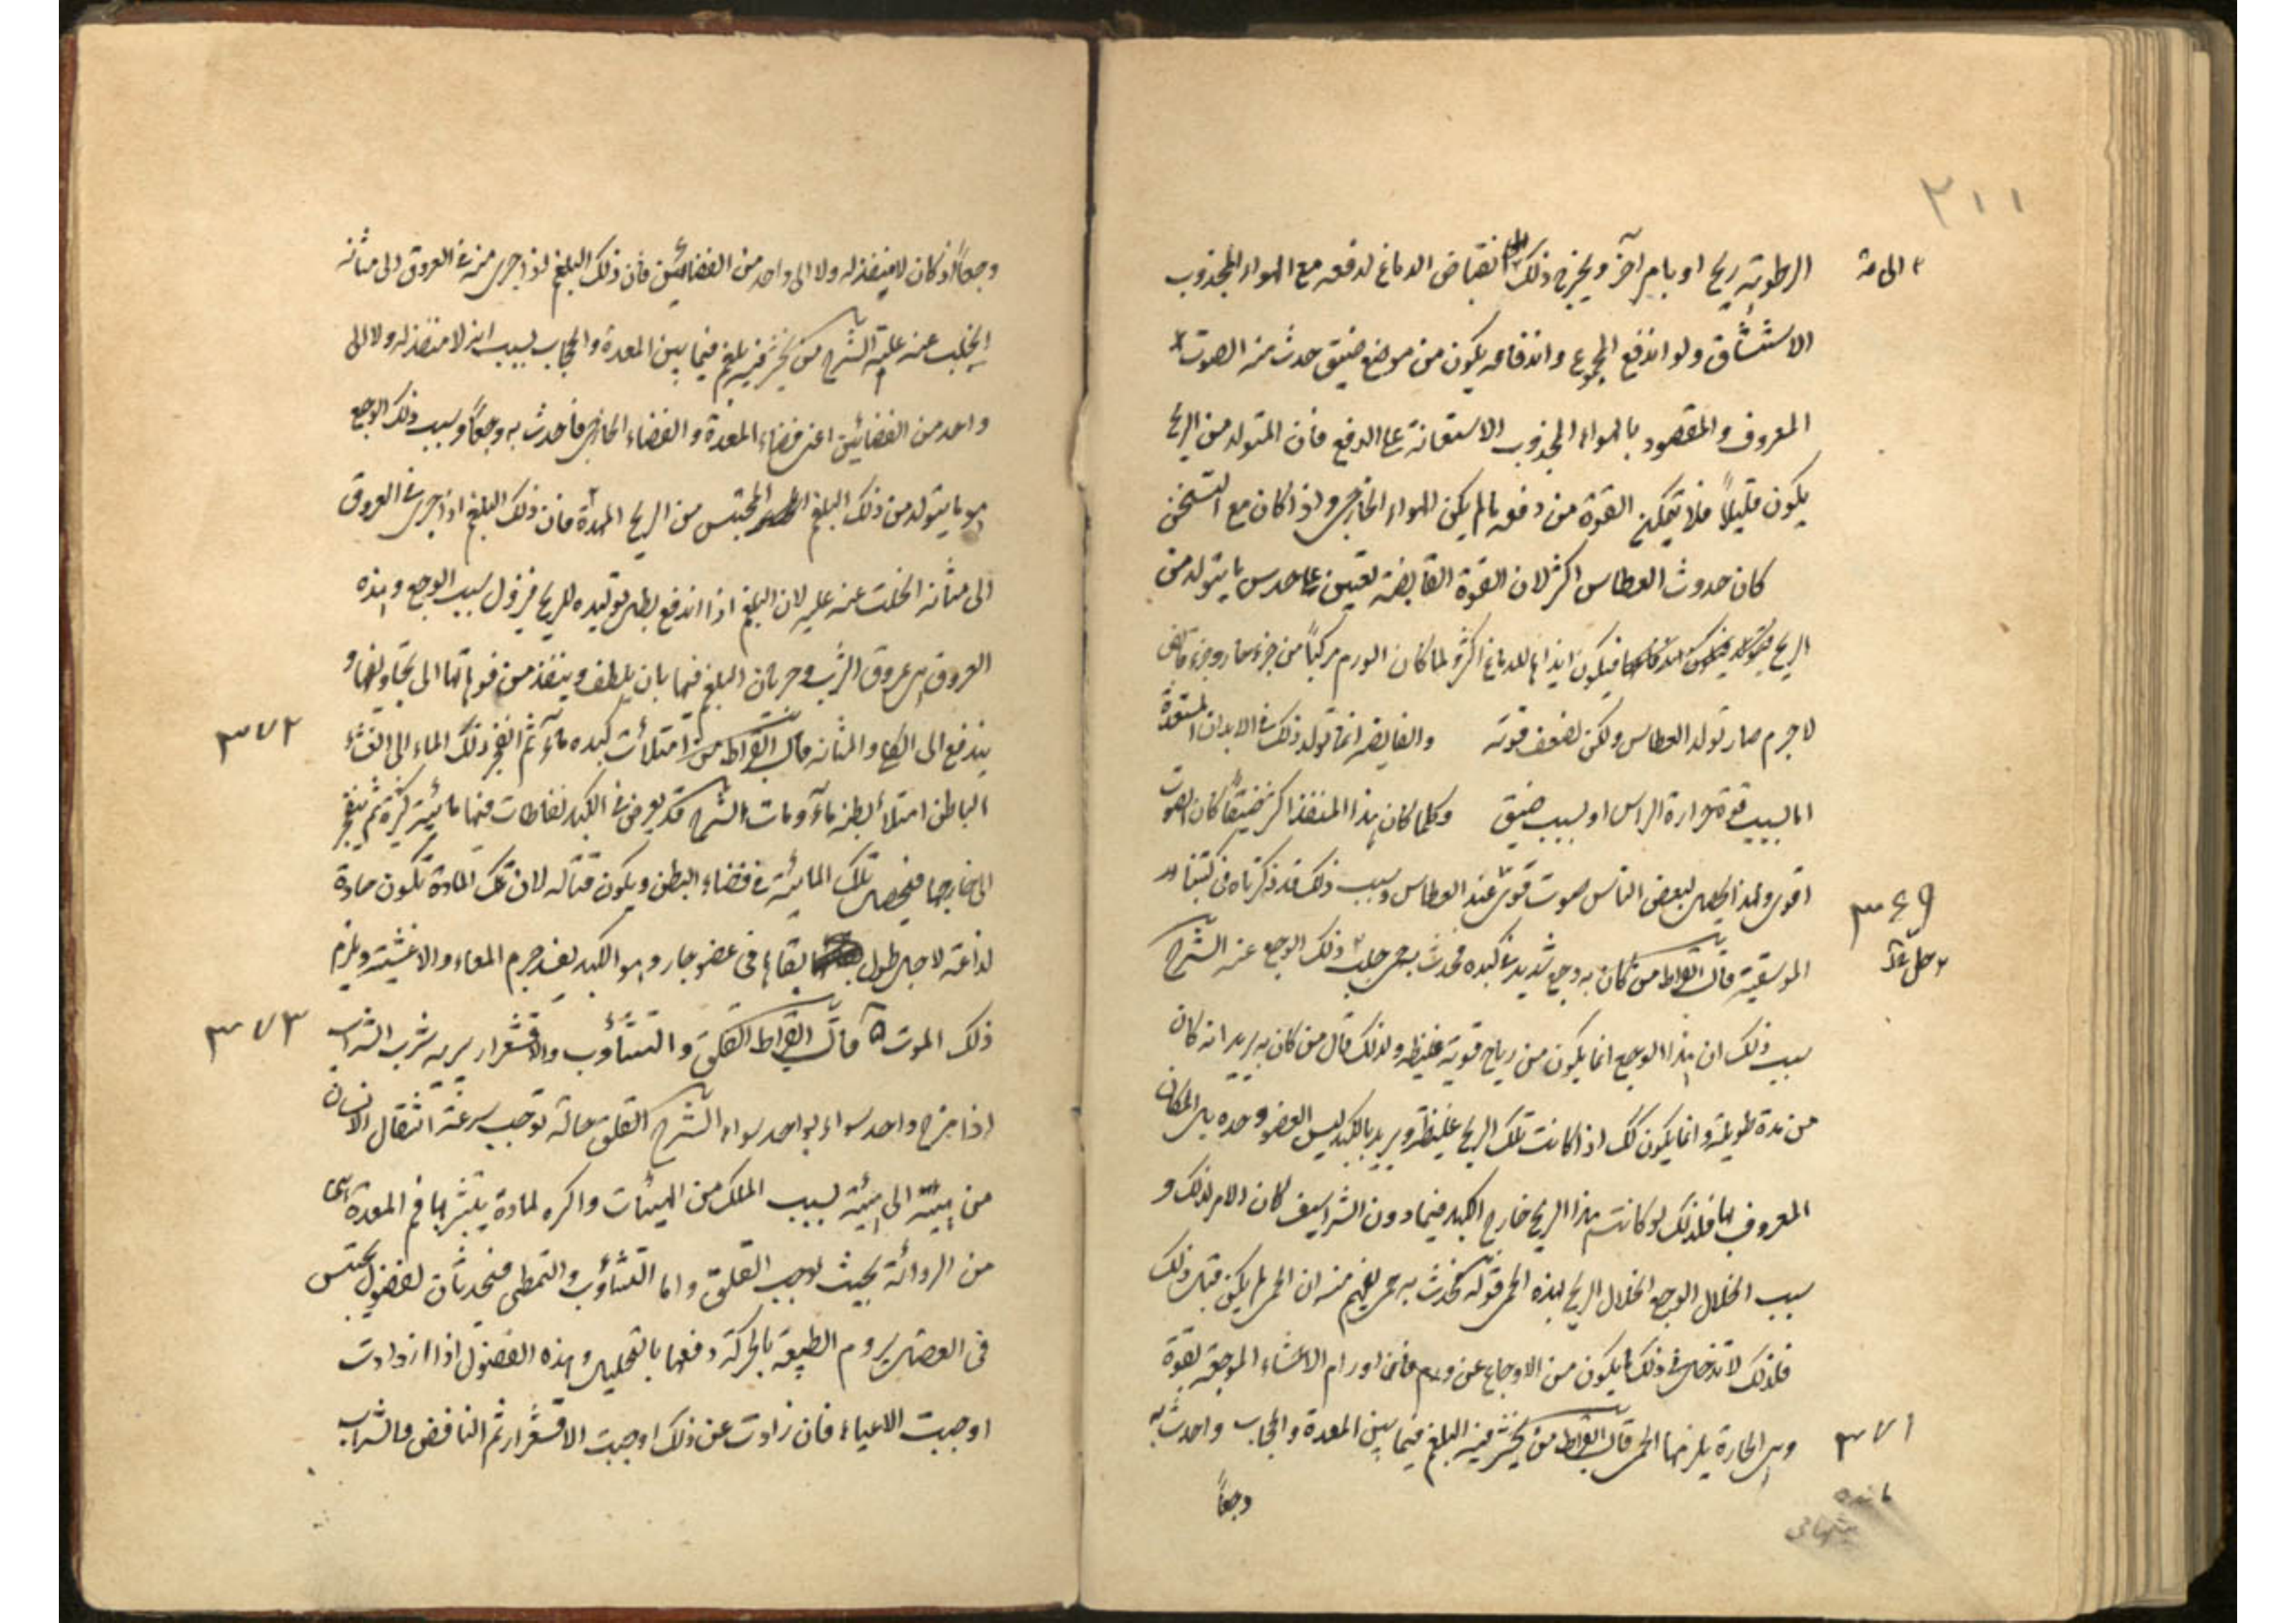 ٢١١
الرطوبة ريح او بام آخر ويخرج ذلك انقباض الدماغ لدفعه مع الهواء المجذوب
الاستنشاق ولو اندفع المجموع واندفاعه يكون من موضع ضيق حدث منه الصوت
المعروف والمقصود بالهواء المجذوب الاستعانة على الدفع فان المتولد من الريح
يكون قليلاً فلا تتمكن القوة من دفعه مالم يكن الهواء الخارجى واذا كان مع التسخن
كان حدوث العطاس اكثر لان القوة القابضة تعين على ما يتولد من
الريح فيكون ايذاها للدماغ اكثر ولما كان الورم مركباً من جزء حار وجزء
لاجرم صار تولد العطاس ولكن لضعف قوته والقابضة انما تولد ذلك فى الابدان المستعدة
اما بسبب قوة حرارة الراس او بسبب ضيق وكلما كان هذا المنفذ اكثر ضيقاً كان الصوت
اقوى ولهذا يحصل لبعض الناس صوت قوى عند العطاس وسبب ذلك قد ذكرناه فى كتبنا
٣٦٩
الموسيقية قال ابقراط من كان به وجع شديد فى كبده فحدث به حمى حلت ذلك الوجع عنه الشرح
سبب ذلك ان هذا الوجع انما يكون من رياح قوية غليظة ولذلك قال من كان به يريد انه كان
من مدة طويلة وانما يكون كك اذا كانت تلك الريح غليظة ويريد بالكبد ليس العضو وحده بل المكان
المعروف بها فلذلك لو كانت هذا الريح خارج الكبد فيما دون الشراسيف كان الامر كذلك و
سبب انحلال الوجع انحلال الريح بهذه الحمى قوله فحدث به حمى يفهم منه ان الحمى لم يكن قبل ذلك
فلذلك لا تدخل فى ذلك ما يكون من الاوجاع عن ورم فان اورام الاحشاء الموجعة بقوة
٣٧١
وهى الحارة يلزمها الحمى قال ابقراط من يحتبس فيه البلغم فيما بين المعدة والحجاب واحدث به
وجعاً
وجعاً اذ كان لا منفذ له ولا الى واحد من الفضائين فان ذلك البلغم اذا جرى منه فى العروق الى مثانه
انحلت عنه علته الشرح من يحتبس فيه بلغم فيما بين المعدة والحجاب بسبب انه لا منفذ له ولا الى
واحد من الفضائين اعنى فضاء المعدة والفضاء الخارجى فاحدث به وجعاً وسبب ذلك الوجع
هو ما يتولد من ذلك البلغم المحتبس من الريح الممددة فان ذلك البلغم اذا جرى فى العروق
الى مثانه انحلت عنه عليه لان البلغم اذا اندفع بطل توليده للريح فيزول سبب الوجع وهذه
العروق هى عروق الثرب وجريان البلغم فيها بان يلطف وينفذ من فوهاتها الى تجاويفها و
٣٧٢
يندفع الى الكلى والمثانه قال ابقراط من امتلأت كبده ماءً ثم انفجر ذلك الماء الى الغشاء
الباطن امتلأ بطنه ماءً ومات الشرح قد يعرض فى الكبد نفاطات فيها مائية كثيرة ثم ينفجر
الى خارجها فيحصل تلك المائية فى فضاء البطن ويكون قتالة لان تلك المادة تكون حادة
لذاعة لاجل طول بقائها فى عضو حار وهو الكبد يفسد جرم المعاء والاغشية ويلزم
٣٧٣
ذلك الموت قال ابقراط القلق والتثاؤب والاقشعرار يبريه شرب الشراب
اذا مزج واحد سواء بواحد سواء الشرح القلق حالة توجب سرعة انتقال الانسان
من هيئة الى هيئة بسبب الملل من الهيئات واكره لمادة يتشربها فم المعدة
من الرداءة بحيث يوجب القلق واما التثاؤب والتمطى فيحدثان لفضول تحتبس
فى العضل يروم الطبيعة بالحركة دفعها بالتحليل وهذه الفضول اذا ازدادت
اوجبت الاعياء فان زادت عن ذلك اوجبت الاقشعرار ثم النافض والشراب